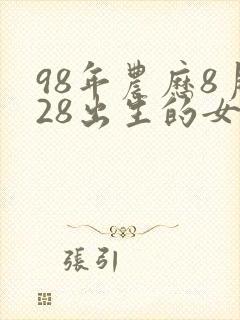 98年農歷8月
28出生的女
張引